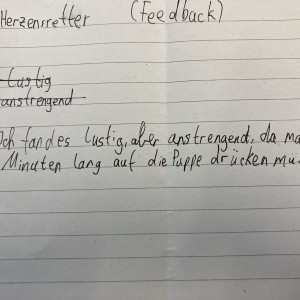 Herzensretter (Feedback)
Lustig
anstrengend
Ich fand es lustig, aber anstrengend, da ma
Minuten lang auf die Puppe drücken mu